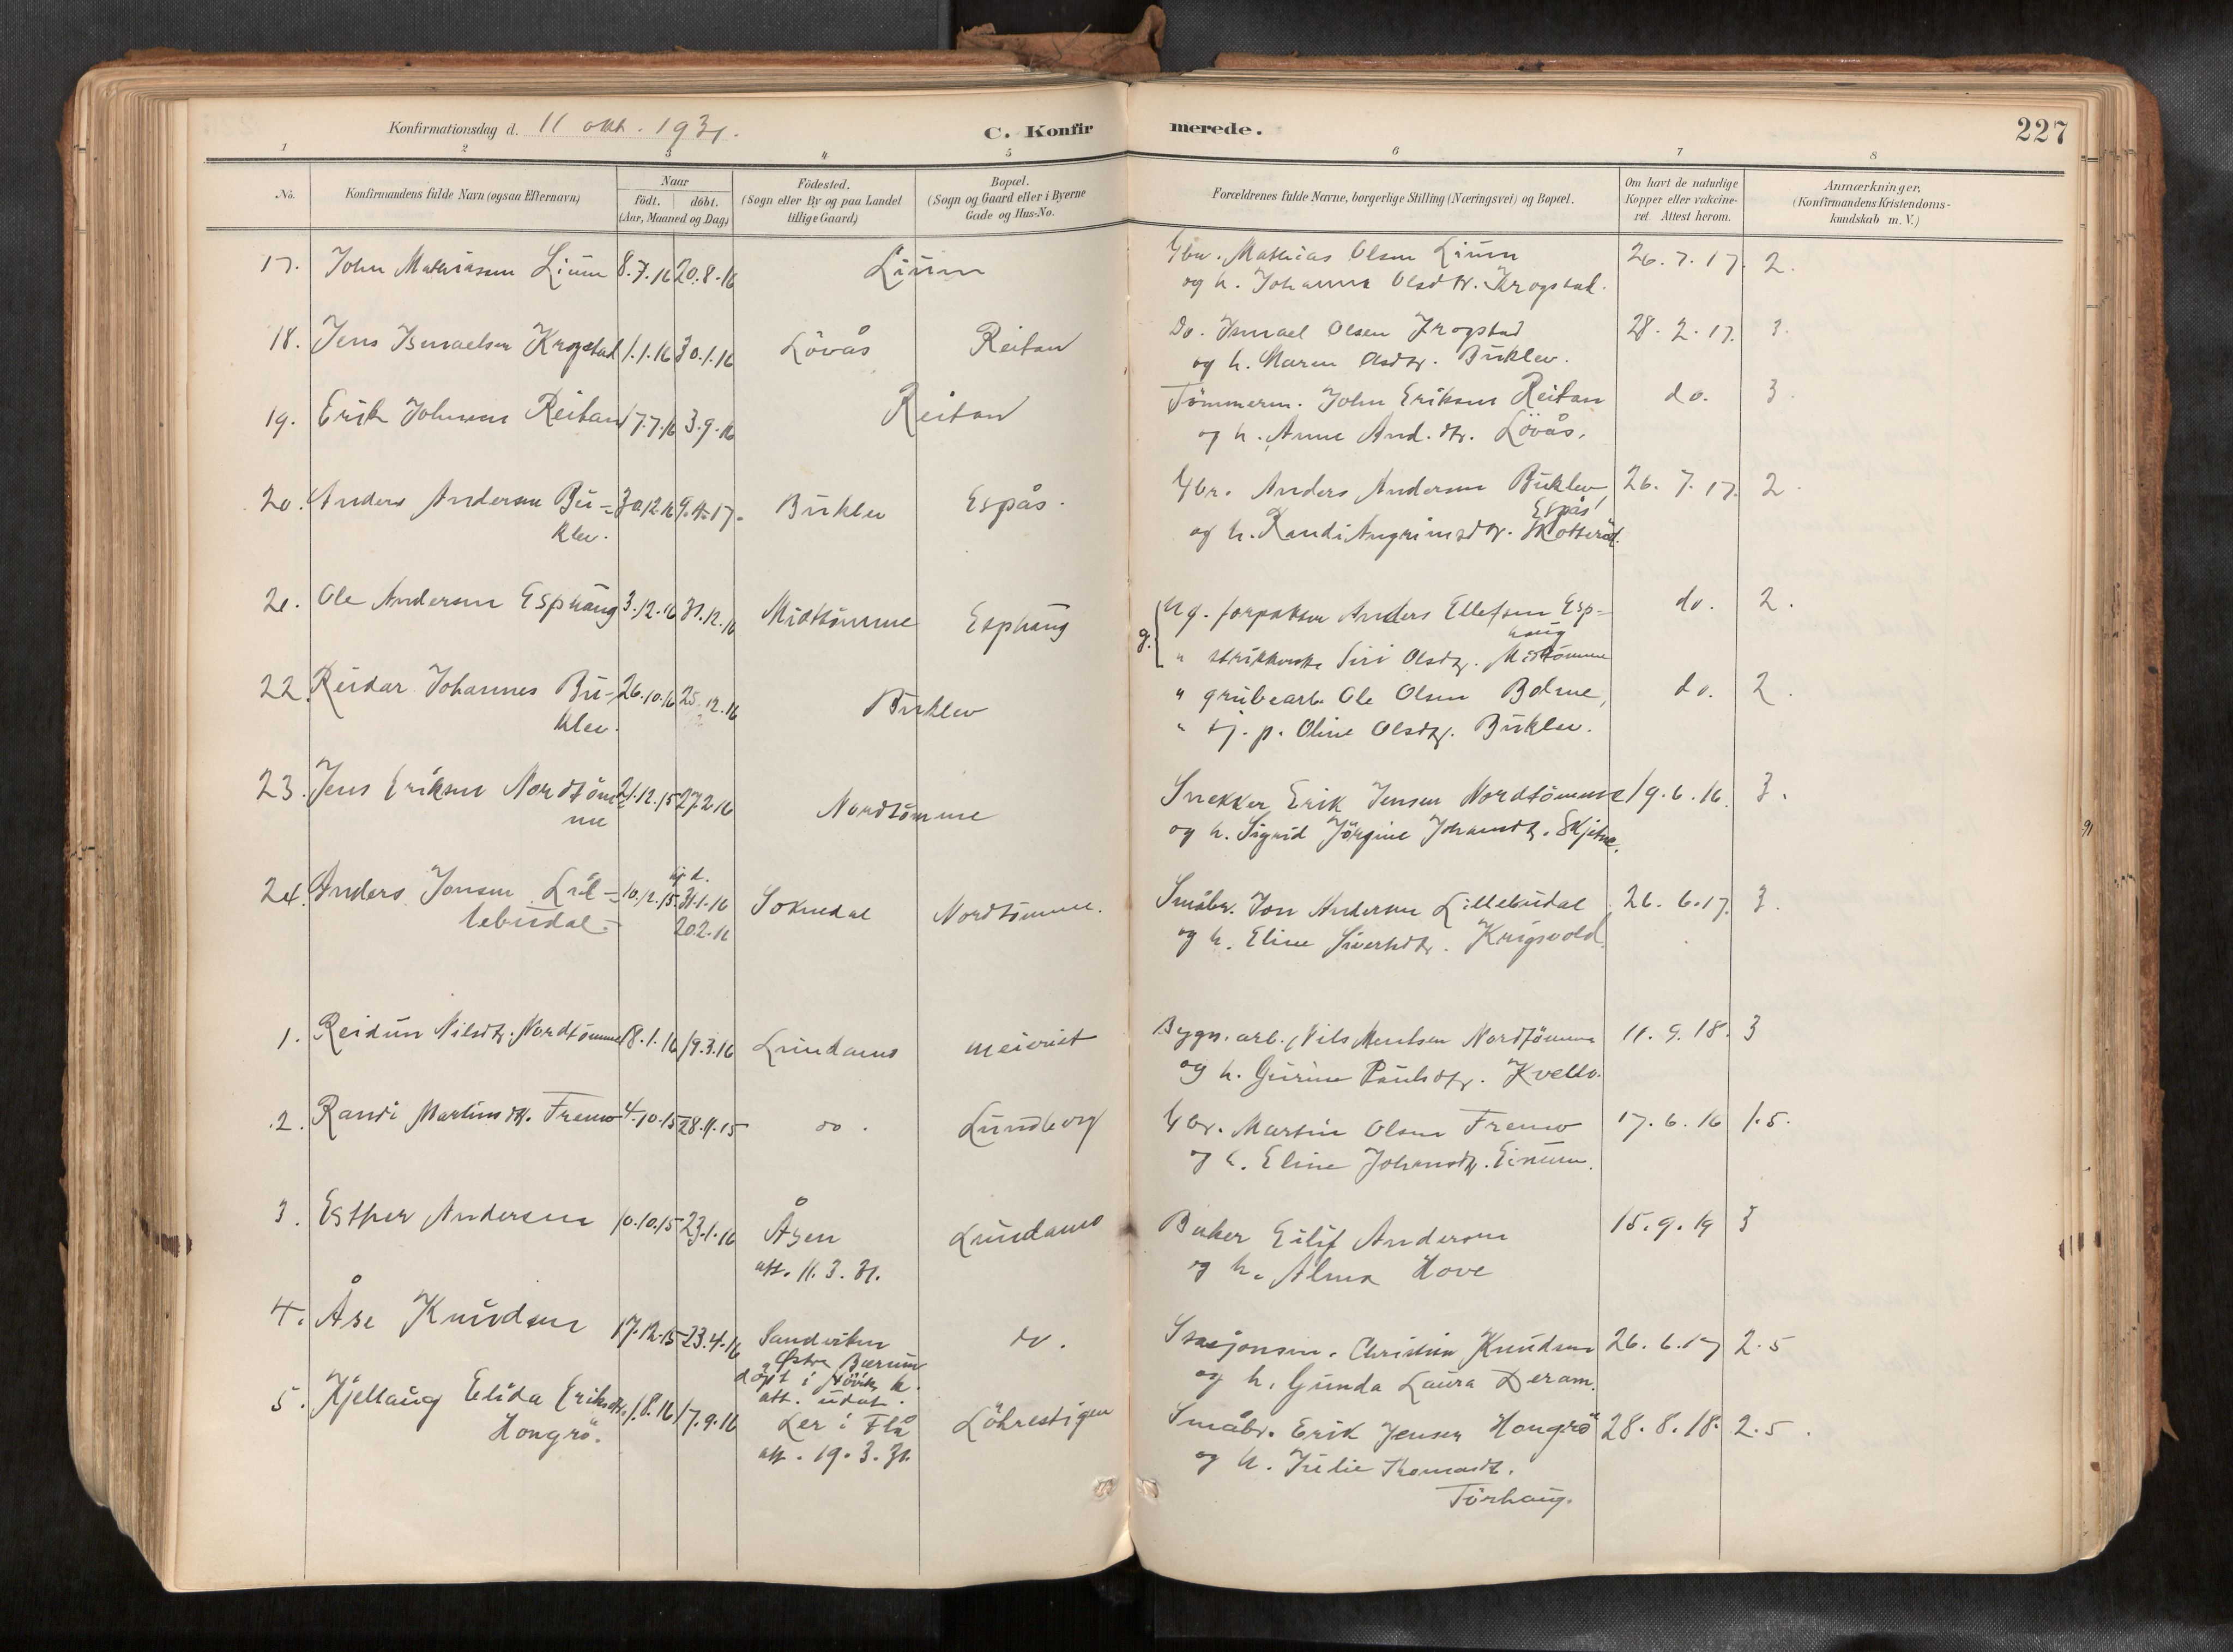 Konfirmationsdag d. 11 okt. 1931.
C. Konfirmerede.
227
1 2 3 4 5 6 7 8
No.
Konfirmandens fulde Navn (ogsaa Efternavn)
Naar
födt. döbt.
(Aar, Maaned og Dag)
Födested.
(Sogn eller By og paa Landet
tillige Gaard)
Bopæl.
(Sogn og Gaard eller i Byerne
Gade og Hus-No.
Forældrenes fulde Navne, borgerlige Stilling (Næringsvei) og Bopæl.
Om havt de naturlige
Kopper eller vakcine-
ret Attest herom.
Anmærkninger.
(Konfirmandens Kristendoms-
kundskab m. V.)
17. John Mathiasen Lium 8.7.16 20.8.16 Lium Gbr. Mathias Olsen Lium 26.7.17. 2.
og h. Johanna Olsdtr. Krogstad.
18. Jens Ismaelsen Krogstad 1.1.16 30.1.16 Lövås Reitan Do. Ismael Olsen Krogstad 28.2.17. 3.
og h. Maren Olsdtr. Buklev.
19. Erik Johnsen Reitan 17.7.16 3.9.16 Reitan Tömmerm. John Eriksen Reitan do. 3.
og h. Anne And.dtr. Lövås.
20. Anders Andersen Bu- 30.12.16 9.4.17. Buklev Espås. Gbr. Anders Andersen Buklev, 26.7.17. 2.
klev.
Espås
og h. Randi Angrimsdtr. Skotterud.
21. Ole Andersen Esphaug 3.12.16 31.12.16 Midttömme Esphaug g. Ug. forpakter Anders Ellefsen Esp- do. 2.
haug
" strikkerske Siri Olsdtr. Midttömme
22. Reidar Johannes Bu- 26.10.16 25.12.16 Buklev " grubearb. Ole Olsen Bolme, do. 2.
klev.
" tj. p. Oline Olsdtr. Buklev.
23. Jens Eriksen Nordtöm- 21.12.15 27.2.16 Nordtömme Snekker Erik Jensen Nordtömme 19.6.16. 3.
me
og h. Sigrid Jörgine Johansdtr. Skjetne.
24. Anders Jonsen Lil- 10.12.15 hj. d. 31.1.16 Soknedal Nordtömme. Småbr. Jon Andersen Lillebudal 26.6.17. 3.
lebudal. 20.2.16
og h. Eline Sivertsdtr. Krigsvold.
1. Reidun Nilsdtr. Nordtömme 18.1.16 19.3.16 Lundamo meieriet Bygn.arb. Nils Mentsen Nordtömme 11.9.18. 3
og h. Gurine Paulsdtr. Kvello.
2. Randi Martinsdtr. Fremo 4.10.15 28.11.15 do. Lundberg Gbr. Martin Olsen Fremo 17.6.16 1.5.
og h. Eline Johansdtr. Einum.
3. Esther Andersen 10.10.15 23.1.16 Åsen Lundamo Baker Eilif Andersen 15.9.19 3
att. 11.3.31.
og h. Alma Hove
4. Åse Knudsen 17.12.15 23.4.16 Sandviken do. Stasjonsm. Christian Knudsen 26.6.17 2.5
Östre Bærum
döpt i Hövik k.
att. udat.
og h. Gunda Laura Deram.
5. Kjellaug Elida Eriksdtr. 1.8.16 17.9.16 Ler i Flå Löhrestigen Småbr. Erik Jensen Hongrö 28.8.18. 2.5.
Hongrö.
att. 19.3.31.
og h. Julie Thomasdt.
Törhaug.